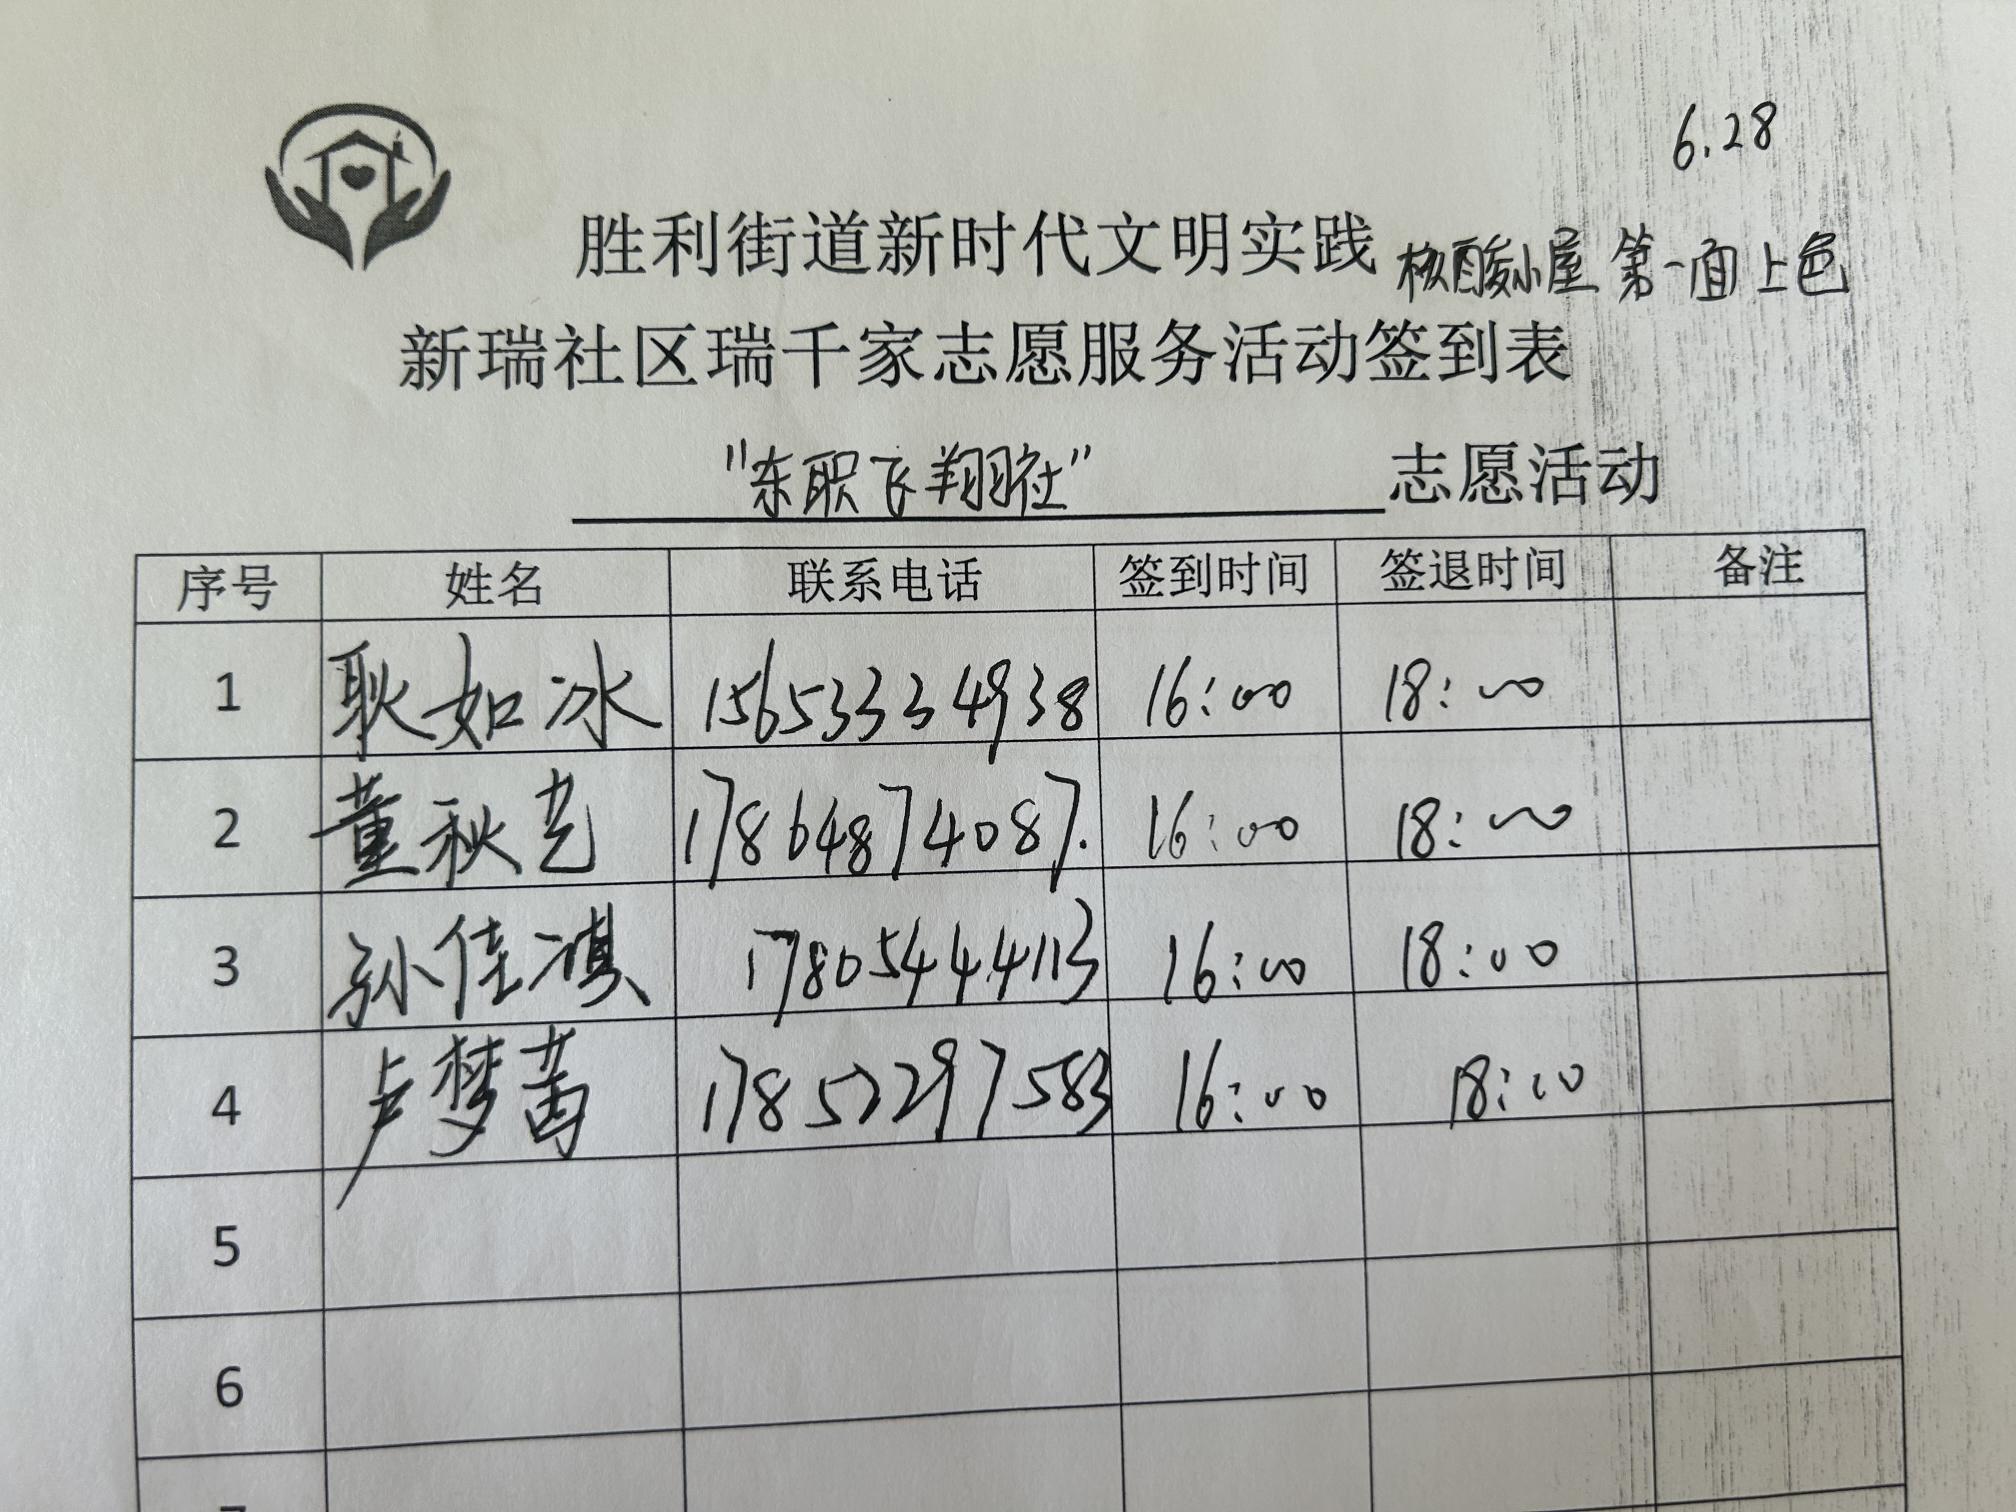 6.28
胜利街道新时代文明实践 核酸小屋 第一面上色
新瑞社区瑞千家志愿服务活动签到表
"东职飞翔社" 志愿活动
序号 姓名 联系电话 签到时间 签退时间 备注
1 耿如冰 15653334938 16:00 18:00
2 董秋艺 17864874087. 16:00 18:00
3 孙佳淇 17805444113 16:00 18:00
4 卢梦茜 17852297583 16:00 18:00
5
6